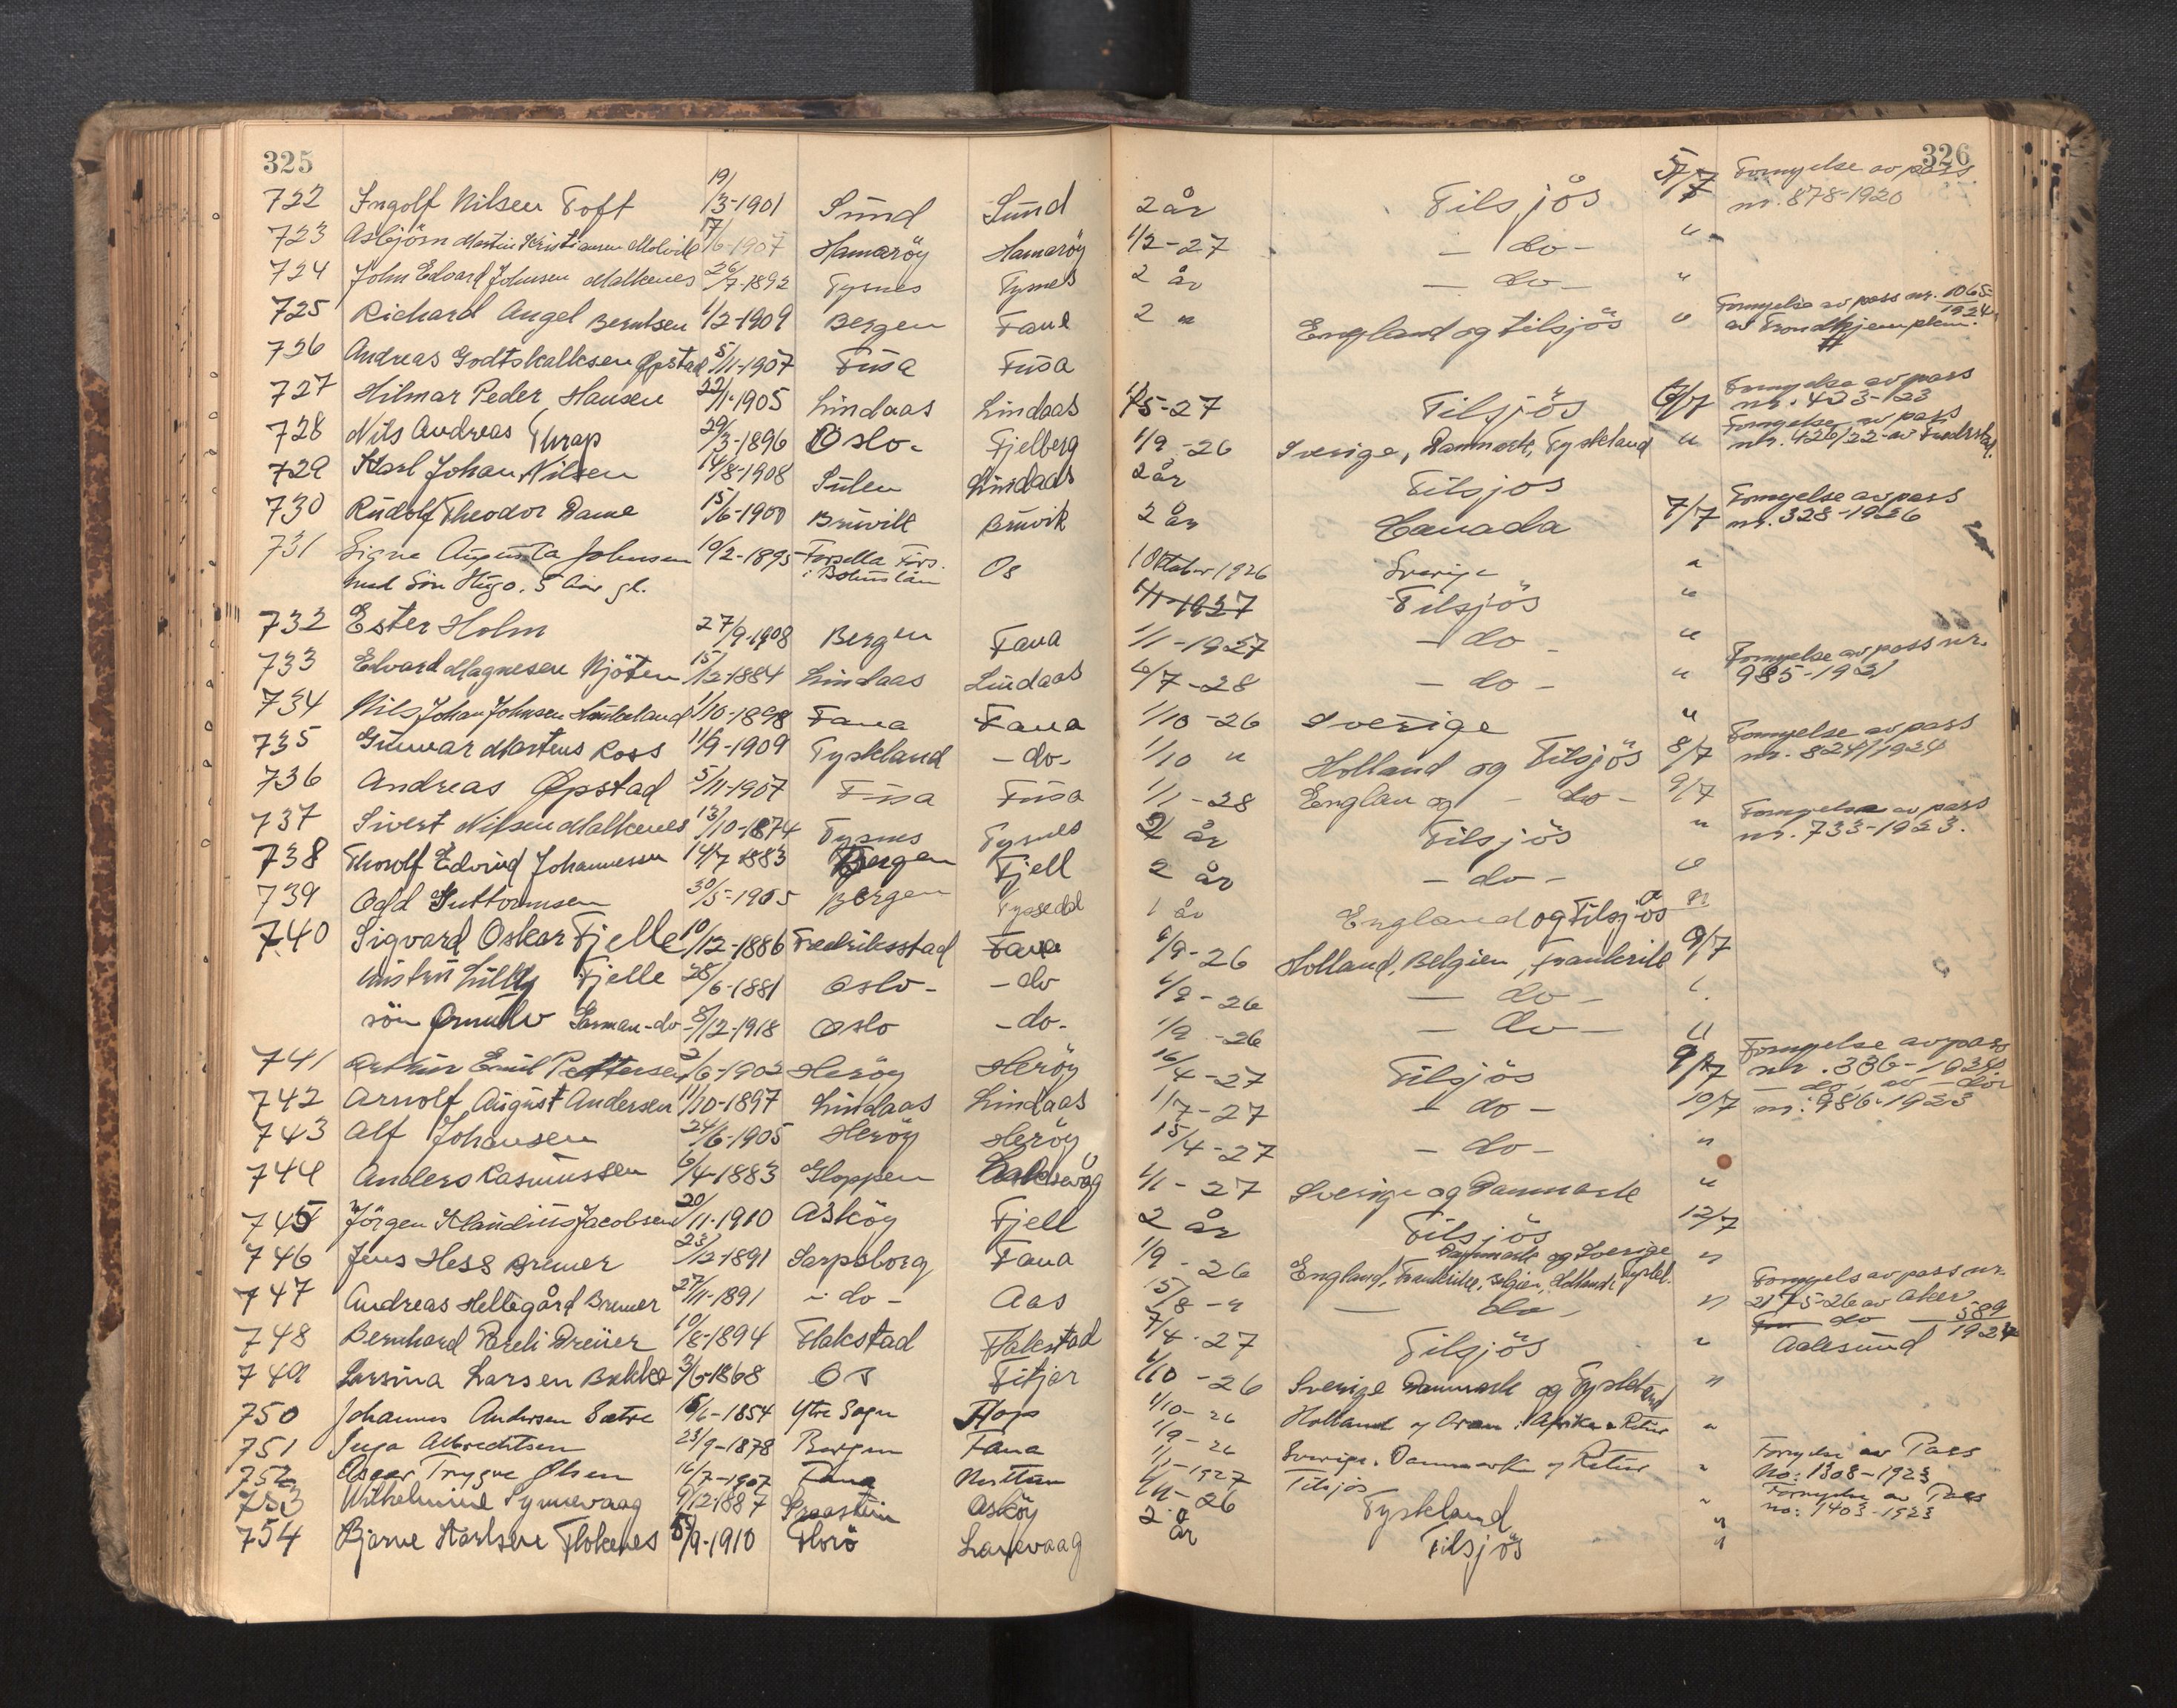 325
326
722 Ingolf Nilsen Toft 19/3-1901 Sund Sund 2 år Tilsjös 5/7 Fornyelse av pass nr. 878-1920
723 Asbjörn Martin Kristiansen 17/6-1907 Hamaröy Hamaröy 1/2-27 - do - "
724 John Edvard Johnsen Malkenes 26/7-1892 Tysnes Tysnes 2 år - do - "
725 Richard Angel Berntsen 1/2-1909 Bergen Fane 2 " England og tilsjös " Fornyelse av pass nr. 1065-1924 av Trondhjem pkm.
726 Andreas Godtskalksen Øpstad 5/11-1907 Fusa Fusa
727 Hilmar Peder Hansen 22/1-1905 Lindaas Lindaas 1/5-27 Tilsjös 6/7 Fornyelse av pass nr. 433-123
728 Nils Andreas Thrap 29/3-1896 Oslo - Fjelberg 1/9-26 Sverige, Danmark, Tyskland " Fornyelse av pass nr. 426/22 av Fredrstad.
729 Karl Johan Nilsen 14/8-1908 Sulen Lindaas 2 år Tilsjos
730 Rudolf Theodor Dame 15/6-1900 Bruvik Bruvik 2 år Canada 7/7 Fornyelse av pass nr. 328-1926
731 Signe Augusta Johnsen 10/2-1895 Forsella Förs. Os 1 Oktober 1926 Sverige "
med Sön Hugo. 5 Aar gl. i Bohuslän 1/11-1927 Tilsjös "
732 Ester Holm 27/9-1908 Bergen Fana 1/1-1927 - do - "
733 Edvard Magnesen Njöten 15/12-1884 Lindaas Lindaas 6/7-28 - do - " Fornyelse av pass nr. 985-1921
734 Nils Johan Johnsen 1/10-1898 Fana Fana 1/10-26 Sverige "
735 Gunnar Martens Ross 11/9-1909 Tyskland - do - 1/10 " Holland og Tilsjös 8/7 Fornyelse av pass nr. 824/1924
736 Andreas Øpstad 5/11-1907 Fusa Fusa 1/1-28 Englan og - do - 9/7
737 Sivert Nilsen Malkenes 13/10-1874 Tysnes Tysnes 2 år Tilsjös " Fornyelse av pass nr. 733-1923.
738 Thorolf Edvind Johannessen 14/7 1883 Bergen Fjell 2 år - do - "
739 Odd Guttormsen 30/5-1905 Bergen Tyssedal 1 år England og Tilsjös "
740 Sigvard Oskar Fjelle 10/12-1886 Fredriksstad Fana 1/9-26 Holland, Belgien, Frankrike 9/7
Hustru Lilly Fjelle 28/6-1881 Oslo - - do 1/9-26 - do - "
sön Ørnulv - do - 8/12-1918 Oslo - do - 1/9-26 - do - "
741 Arthur Emil Pettersen 2/6-1902 Heröy Heröy 16/4-27 Tilsjös 9/7 Fornyelse av pass nr. 336-1924
742 Arnolf August Andersen 11/10-1897 Lindaas Lindaas 1/7-27 - do - 10/7 - do - av - do - nr: 986-1923
743 Alf Johansen 24/6-1905 Heröy Heröy 15/4-27 - do - "
744 Anders Rasmussen 6/4-1883 Gloppen Laksevåg 1/1-27 Sverige og Danmark "
745 Jörgen Klaudius Jacobsen 20/11-1910 Asköy Fjell 2 år Tilsjös 12/7
746 Jens Hess Bremer 23/12-1891 Sarpsborg Fana 1/9-26 England, Frankrike, Belgien, Holland, Tyskl. Danmark og Sverige "
747 Andreas Hellegård Bremer 27/11-1891 - do - Aas 15/8-" - do - " Fornyels av pass nr. 2175-26 av Aker
748 Bernhard Pareli Dreüer 10/8-1894 Flakstad Flakstad 7/4-27 Tilsjös " do 589 1924 Aalesund
749 Larsina Larsen Bakke 3/6-1868 Os Fitjar 1/10-26 Sverige Danmark og Tyskland "
750 Johannes Andersen Sætre 15/6-1854 Ytre Sogn Hop 1/10-26 Holland og Oran i Afrika - Retur "
751 Inga Albrechtsen 23/9-1878 Bergen Fana 1/9-26 Sverige, Danmark og Retur "
752 Asger Trygve Olsen 16/7-1907 Fana Nesttun 1/1-1927 Tilsjös " Fornyelse av Pass No: 1308-1923
753 Wilhelmine Synnevaag 9/12-1887 Asköy 1/11-26 Tyskland " Fornyelse av Pass no: 1403-1923
754 Bjarne Karlsen Flokenes 5/9-1910 Florö Laxevaag 2 år Tilsjös "